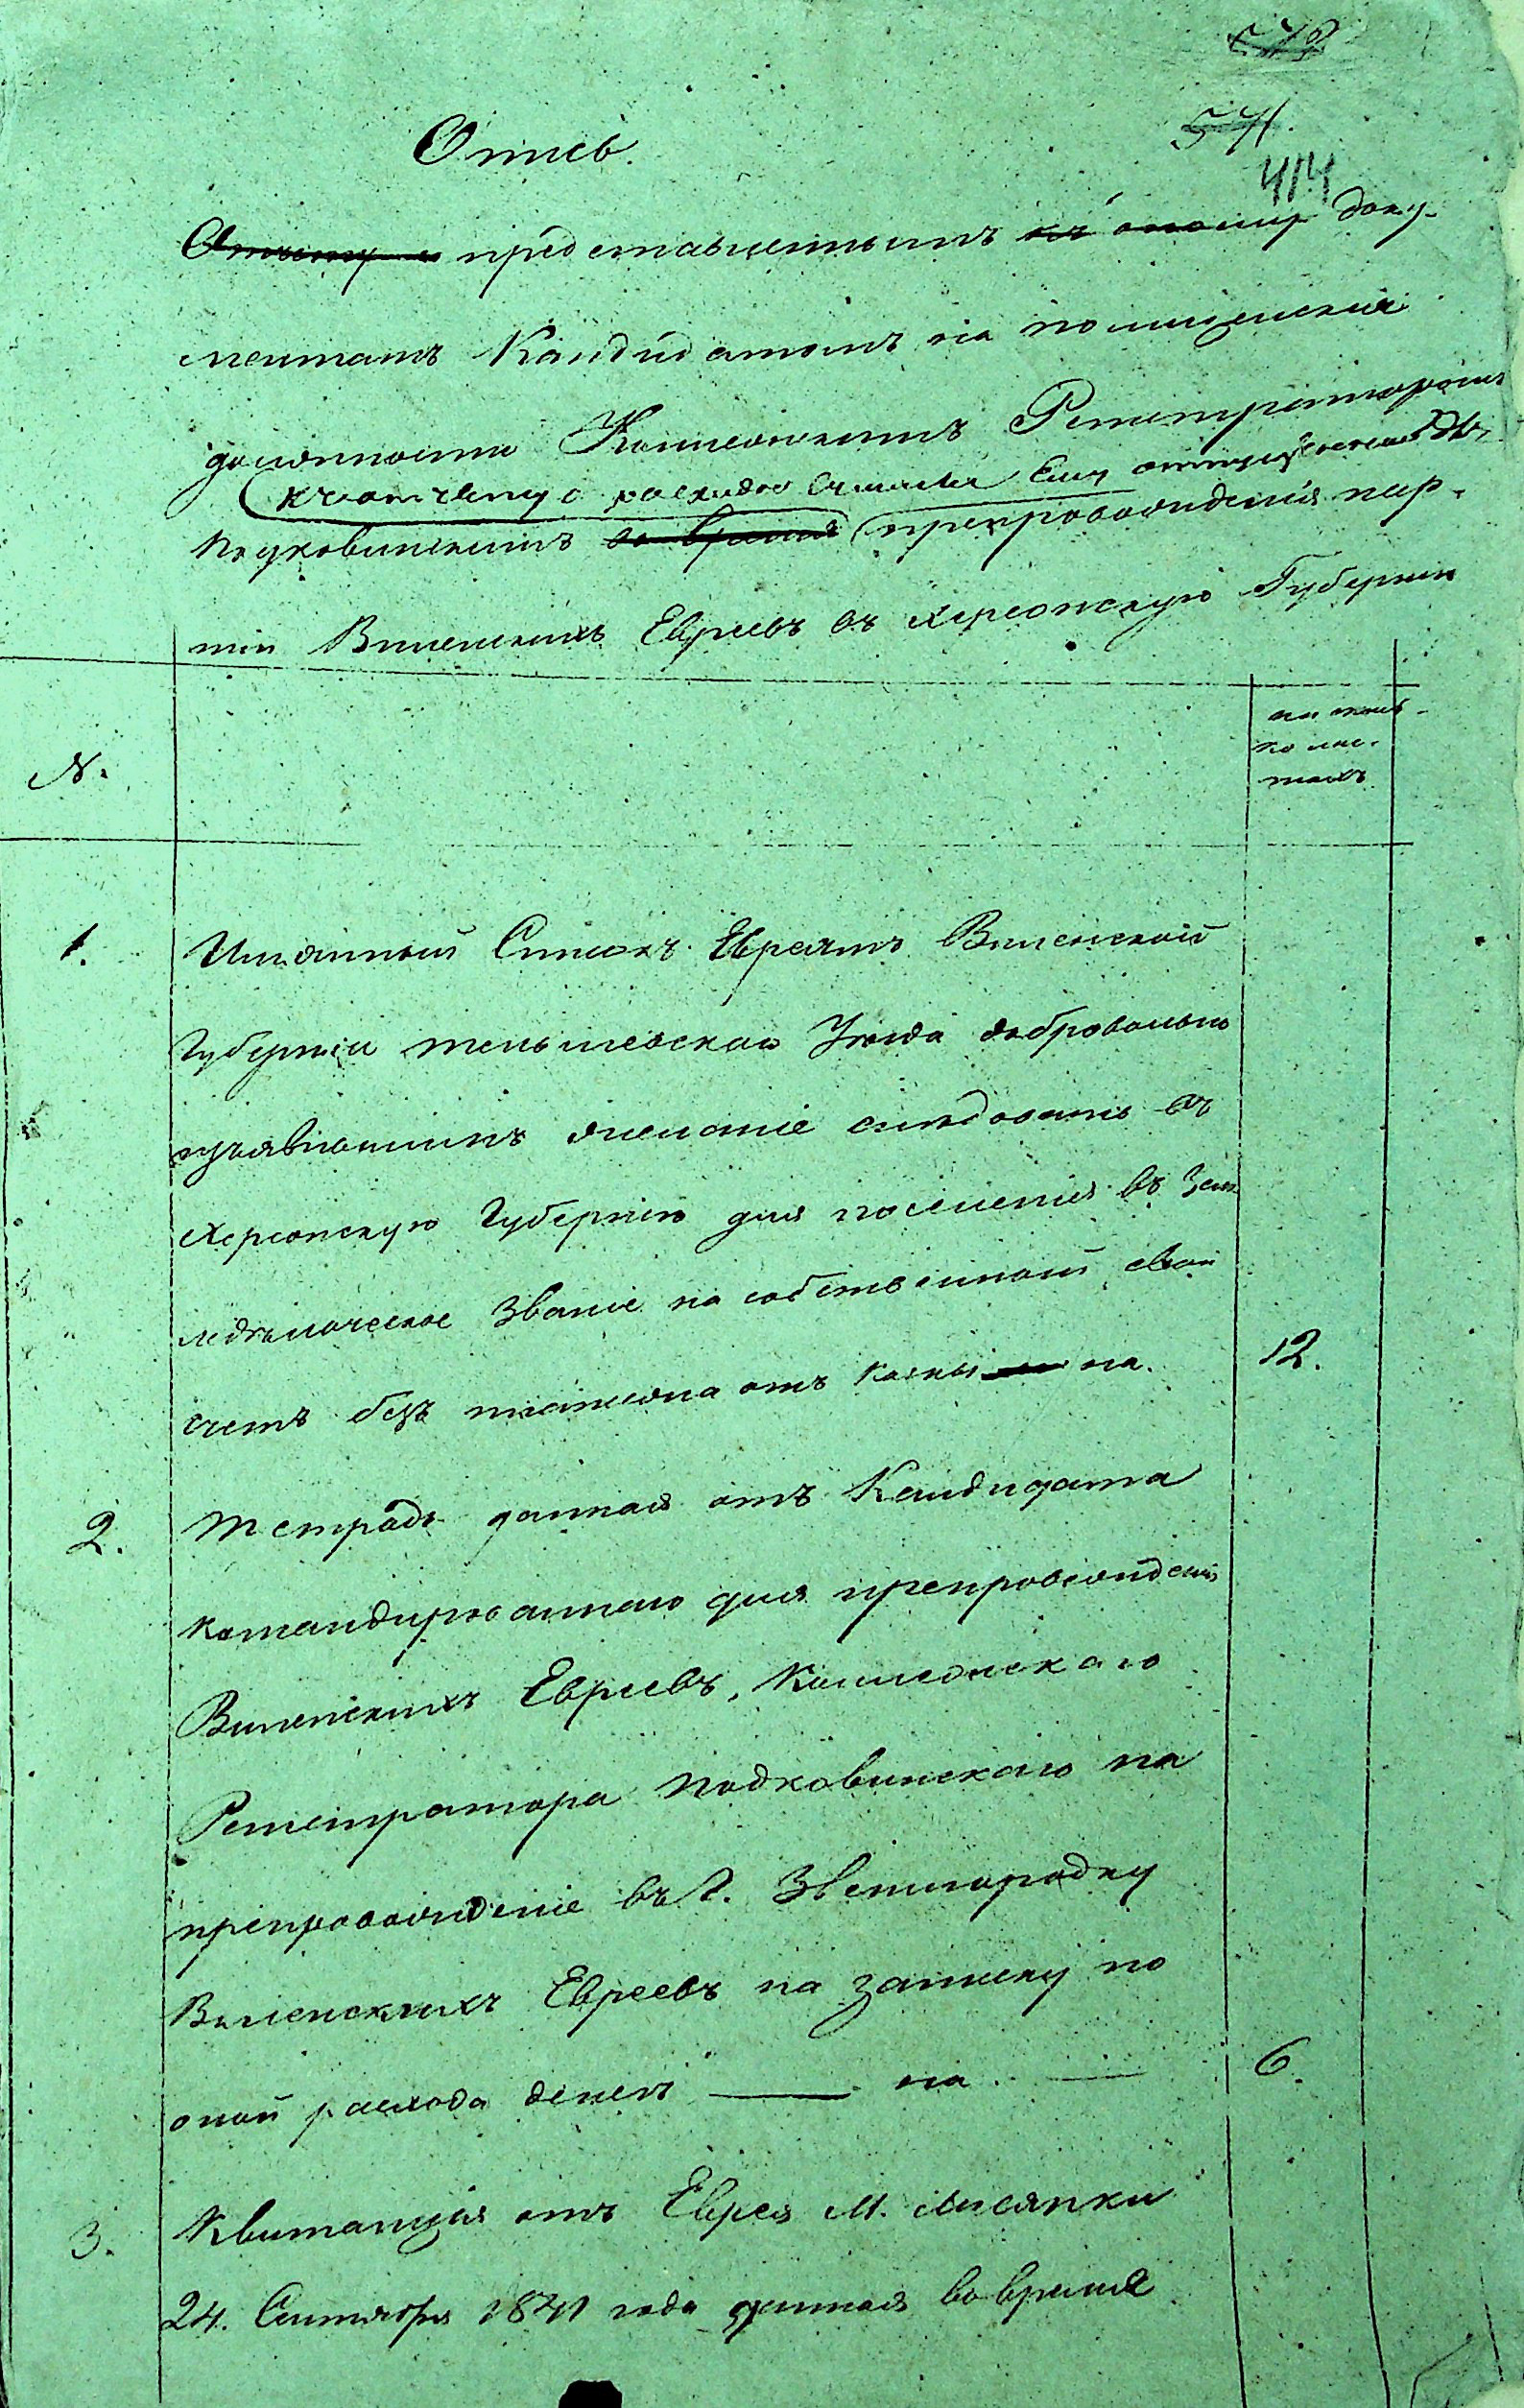 571.
414
Опись.
представленнымъ къ оному доку-
ментамъ Кандидатомъ на полицейскія
должности Коллежскимъ Регистраторомъ
къ отчету о расходѣ суммы Ему отпущенной для
Подковинскимъ во время препровожденія пар-
тіи Виленскихъ Евреевъ въ Херсонскую Губернію
№.
на сколь-
ко лис-
тахъ
1.
Имянный Списокъ Евреямъ Виленской
Губерніи Тельшевскаго Уѣзда добровольно
изъявившимъ желаніе слѣдовать въ
Херсонскую Губернію для поселенія въ Зем
ледѣльческое Званіе на собственный свой
счетъ безъ отъ казны на.
12.
2.
Тетрадь данная отъ Кандидата
командированнаго для препровожденія
Виленскихъ Евреевъ, Коллежскаго
Регистратора Подковинскаго на
препровожденіе въ Г. Звенигородку
Виленскихъ Евреевъ на записку по
оной расхода денегъ на
6.
3.
Квитанція отъ Еврея М. Лисянки
24. Сентября 1841 года данная во время